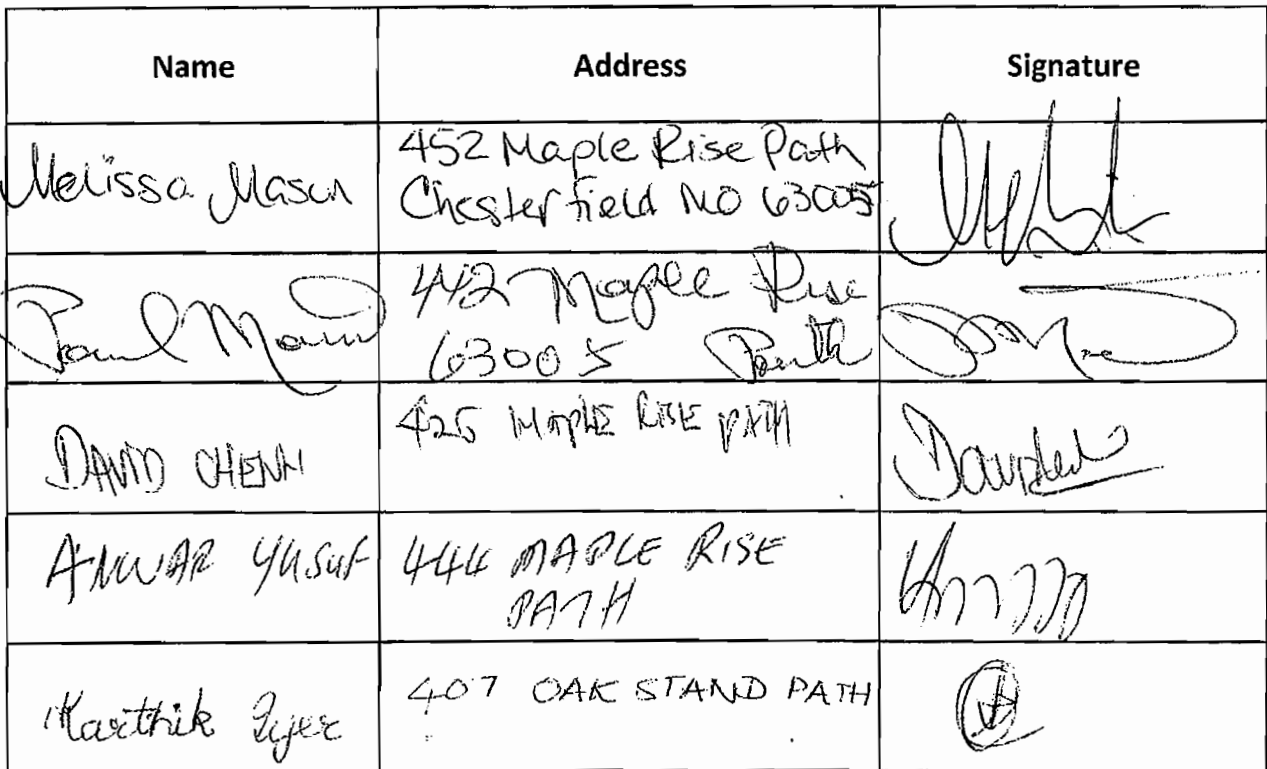 Name Address Signature
Melissa Mason
452 Maple Rise Path
Chesterfield MO 63005
442 Maple Rise
63005 Path
DAVID CHENN
425 MAPLE RISE PATH
ANWAR YUSUF
444 MAPLE RISE
PATH
Karthik Iyer
407 OAK STAND PATH